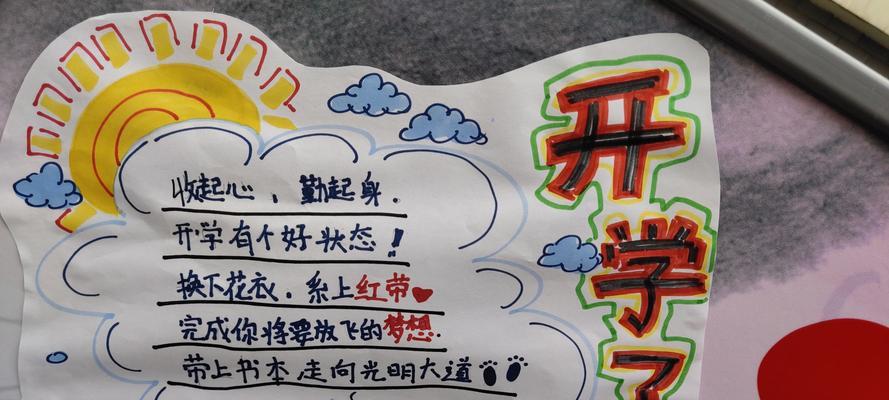 开学了
收起心，勤起身．
开学有个好状态！
换下花衣．系上红带
完成你将要放飞的梦想．
带上书本走向光明大道